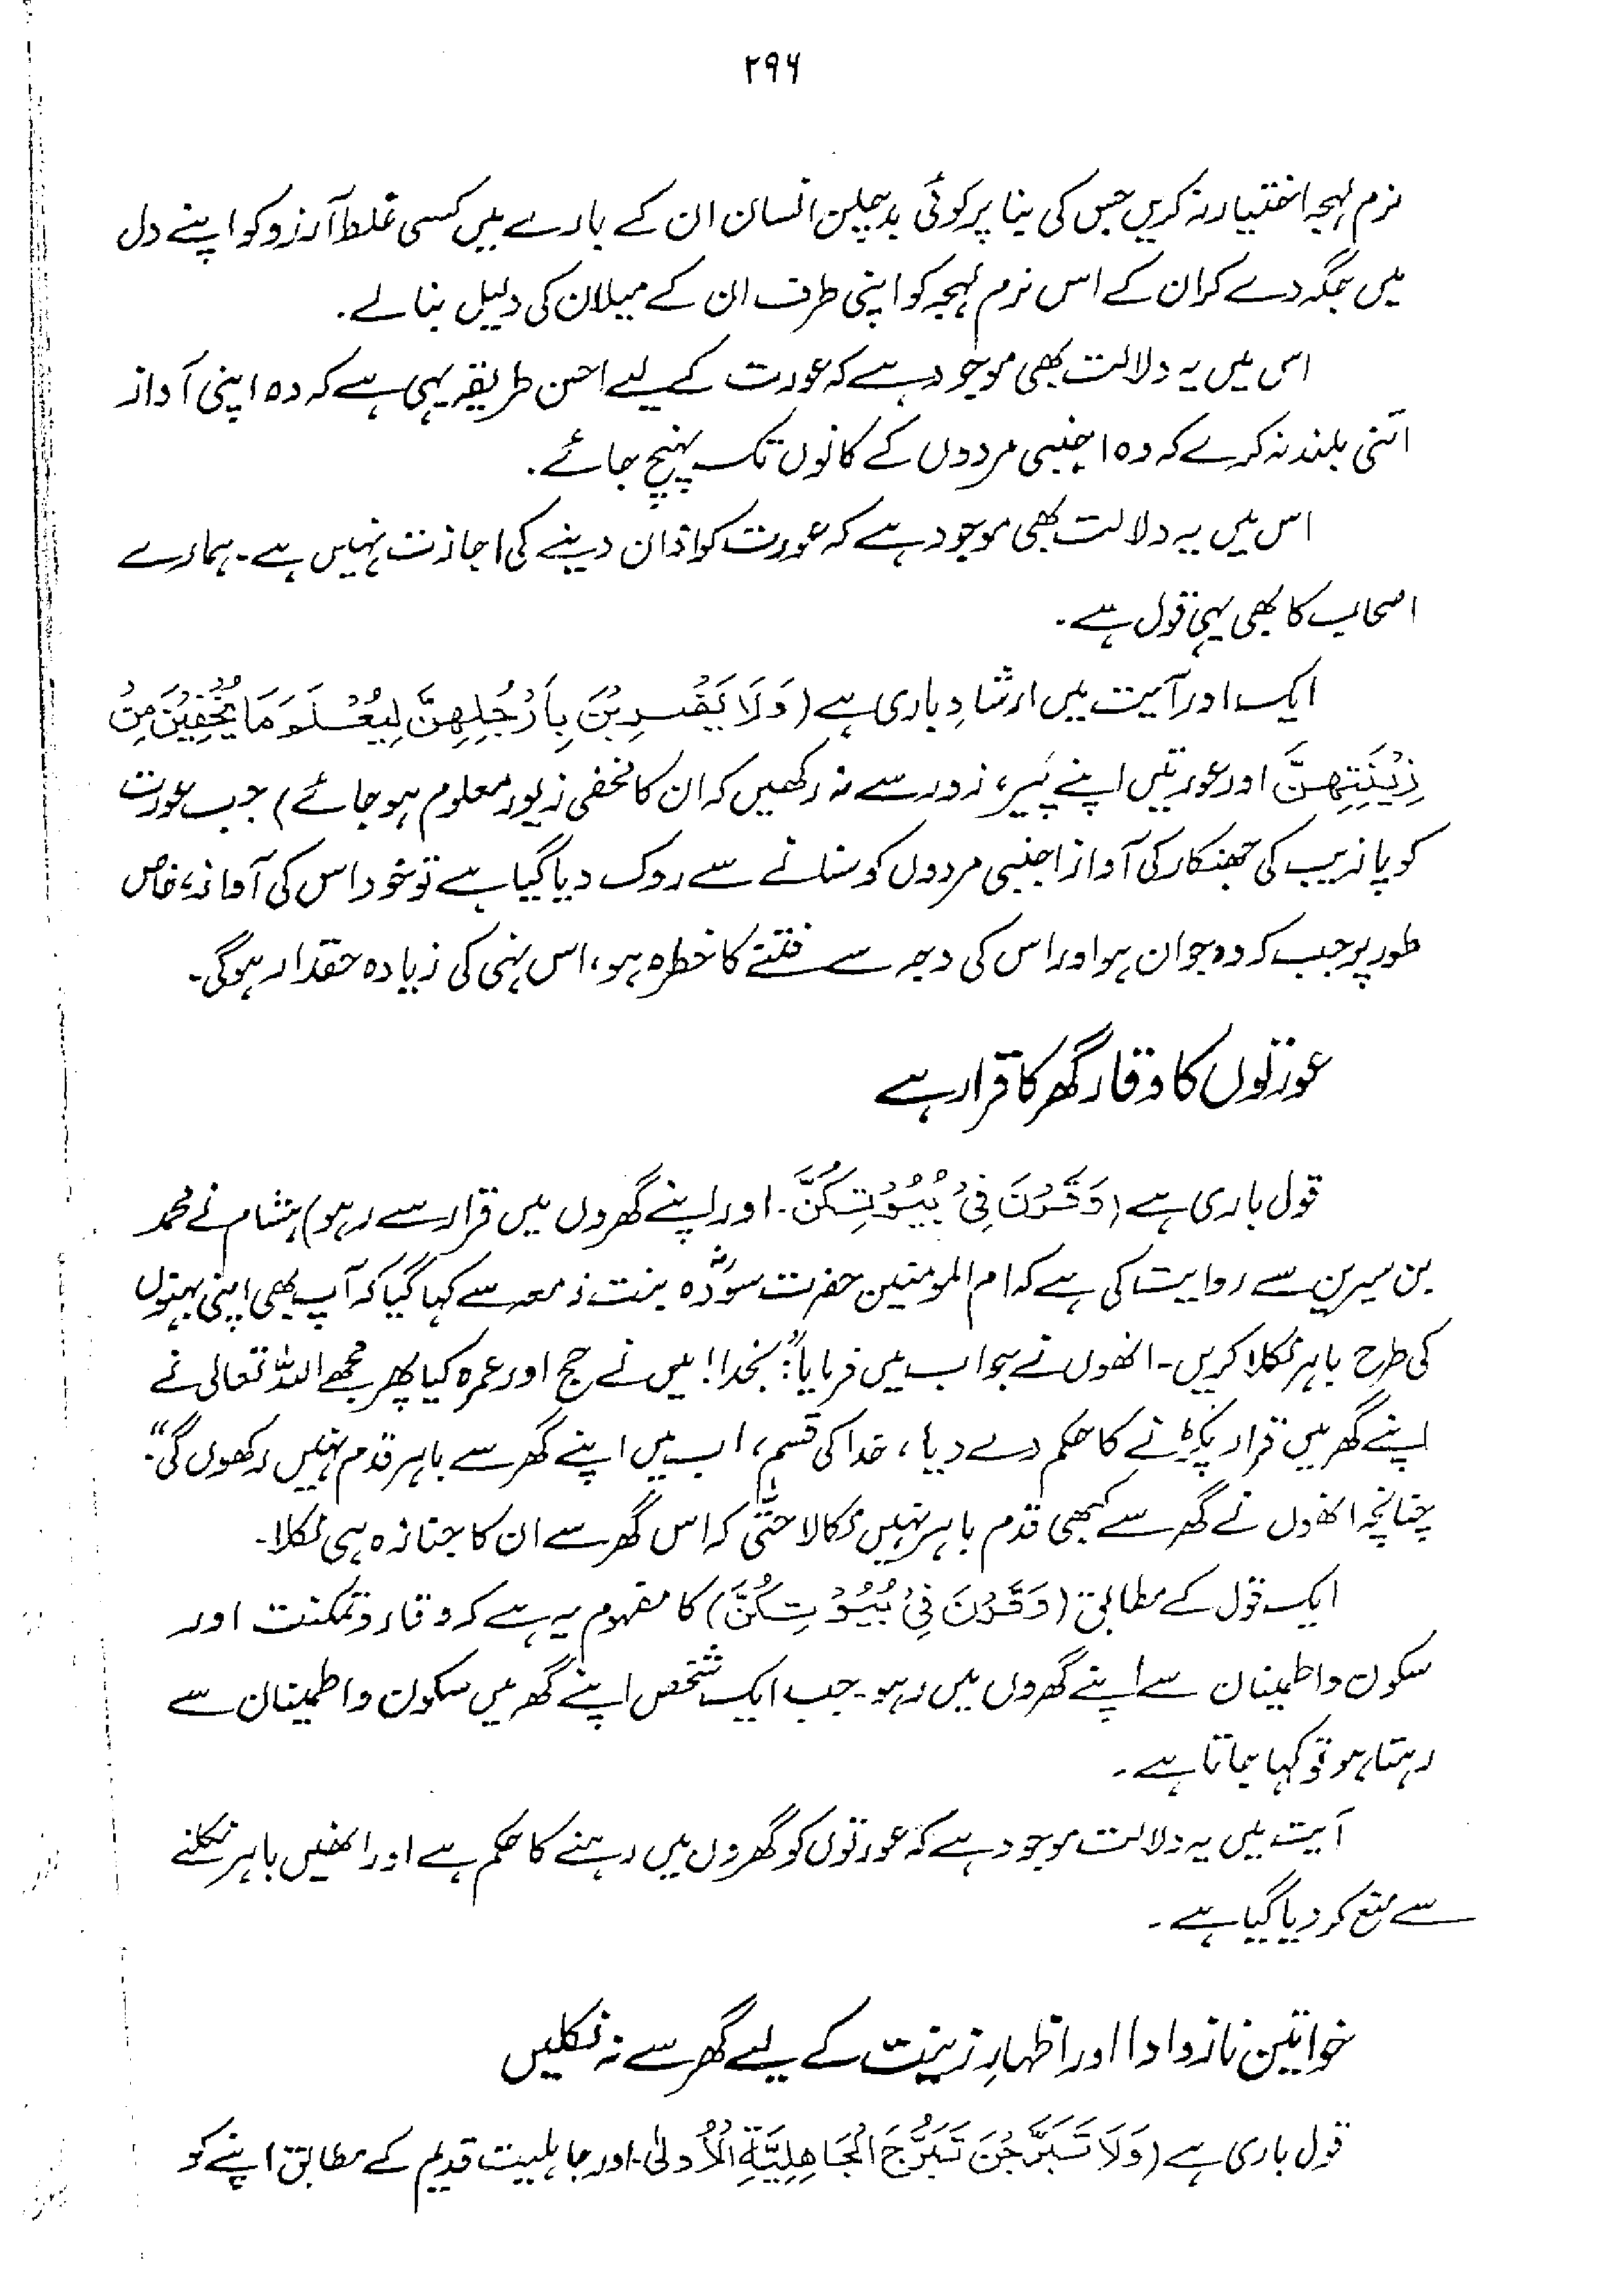 ۲۹۶
نرم لہجہ اختیار نہ کریں جس کی بنا پر کوئی بدچلن انسان ان کے بارے میں کسی غلط آرزو کو اپنے دل
میں جگہ دے کر ان کے اس نرم لہجہ کو اپنی طرف ان کے میلان کی دلیل بنا لے۔
اس میں یہ دلالت بھی موجود ہے کہ عورت کے لیے احسن طریقہ یہی ہے کہ وہ اپنی آواز
اتنی بلند نہ کرے کہ وہ اجنبی مردوں کے کانوں تک پہنچ جائے۔
اس میں یہ دلالت بھی موجود ہے کہ عورت کو اذان دینے کی اجازت نہیں ہے۔ ہمارے
اصحاب کا بھی یہی قول ہے۔
ایک اور آیت میں ارشادِ باری ہے (وَلَا يَضْرِبْنَ بِأَرْجُلِهِنَّ لِيُعْلَمَ مَا يُخْفِيْنَ مِنْ
زِيْنَتِهِنَّ اور عورتیں اپنے پیر، زور سے نہ رکھیں کہ ان کا مخفی زیور معلوم ہو جائے) جب عورت
کو پازیب کی جھنکار کی آواز اجنبی مردوں کو سنانے سے روک دیا گیا ہے تو خود اس کی آواز، خاص
طور پر جب کہ وہ جوان ہو اور اس کی وجہ سے فتنے کا خطرہ ہو، اس نہی کی زیادہ حقدار ہوگی۔
عورتوں کا وقار گھر کا قرار ہے
قول باری ہے (وَقَرْنَ فِيْ بُيُوْتِكُنَّ۔ اور اپنے گھروں میں قرار سے رہو) ہشام نے محمد
بن سیرین سے روایت کی ہے کہ ام المومنین حضرت سودہؓ بنت زمعہ سے کہا گیا کہ آپ بھی اپنی بہنوں
کی طرح باہر نکلا کریں۔ انھوں نے جواب میں فرمایا: "بخدا! میں نے حج اور عمرہ کیا پھر مجھے اللہ تعالیٰ نے
اپنے گھر میں قرار پکڑنے کا حکم دے دیا، خدا کی قسم، اب میں اپنے گھر سے باہر قدم نہیں رکھوں گی"۔
چنانچہ انھوں نے گھر سے کبھی قدم باہر نہیں نکالا حتّٰی کہ اس گھر سے ان کا جنازہ ہی نکلا۔
ایک قول کے مطابق (وَقَرْنَ فِيْ بُيُوْتِكُنَّ) کا مفہوم یہ ہے کہ وقار و تمکنت اور
سکون و اطمینان سے اپنے گھروں میں رہو۔ جب ایک شخص اپنے گھر میں سکون و اطمینان سے
رہتا ہو تو کہا جاتا ہے۔
آیت میں یہ دلالت موجود ہے کہ عورتوں کو گھروں میں رہنے کا حکم ہے اور انھیں باہر نکلنے
سے منع کر دیا گیا ہے۔
خواتین ناز و ادا اور اظہارِ زینت کے لیے گھر سے نہ نکلیں
قول باری ہے (وَلَا تَبَرَّجْنَ تَبَرُّجَ الْجَاهِلِيَّةِ الْأُوْلٰى۔ اور جاہلیت قدیم کے مطابق اپنے کو